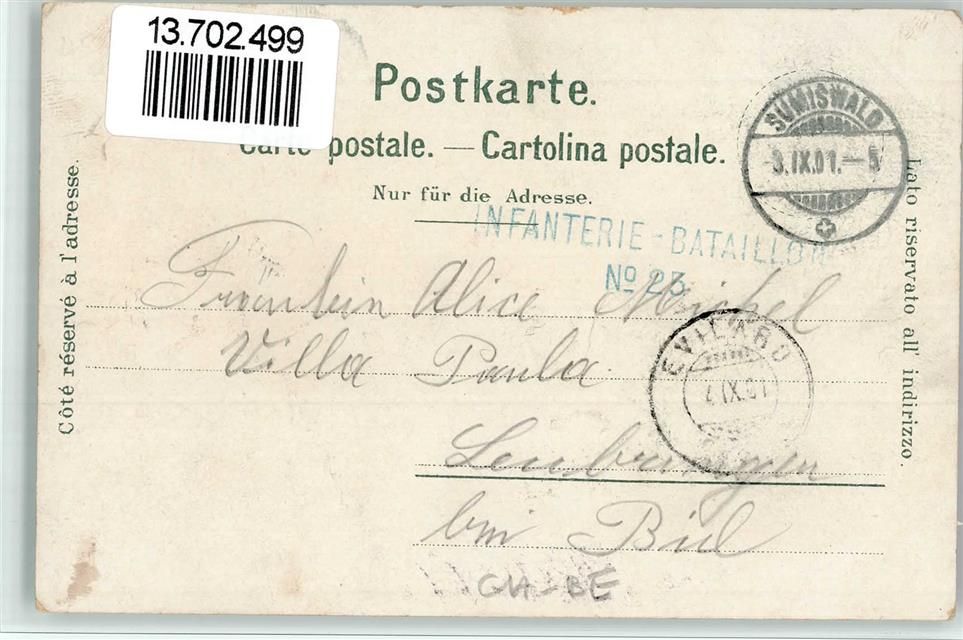 13.702.499
Postkarte.
Carte postale. — Cartolina postale.
Nur für die Adresse.
SUMISWALD
3.IX.01.–5
INFANTERIE-BATAILLON
No 23
Côté réservé à l'adresse.
Lato riservato all' indirizzo.
Fräulein Alice Michel
Villa Paula
EVILARD
IX.01
Leubringen
bei Biel
CH-BE